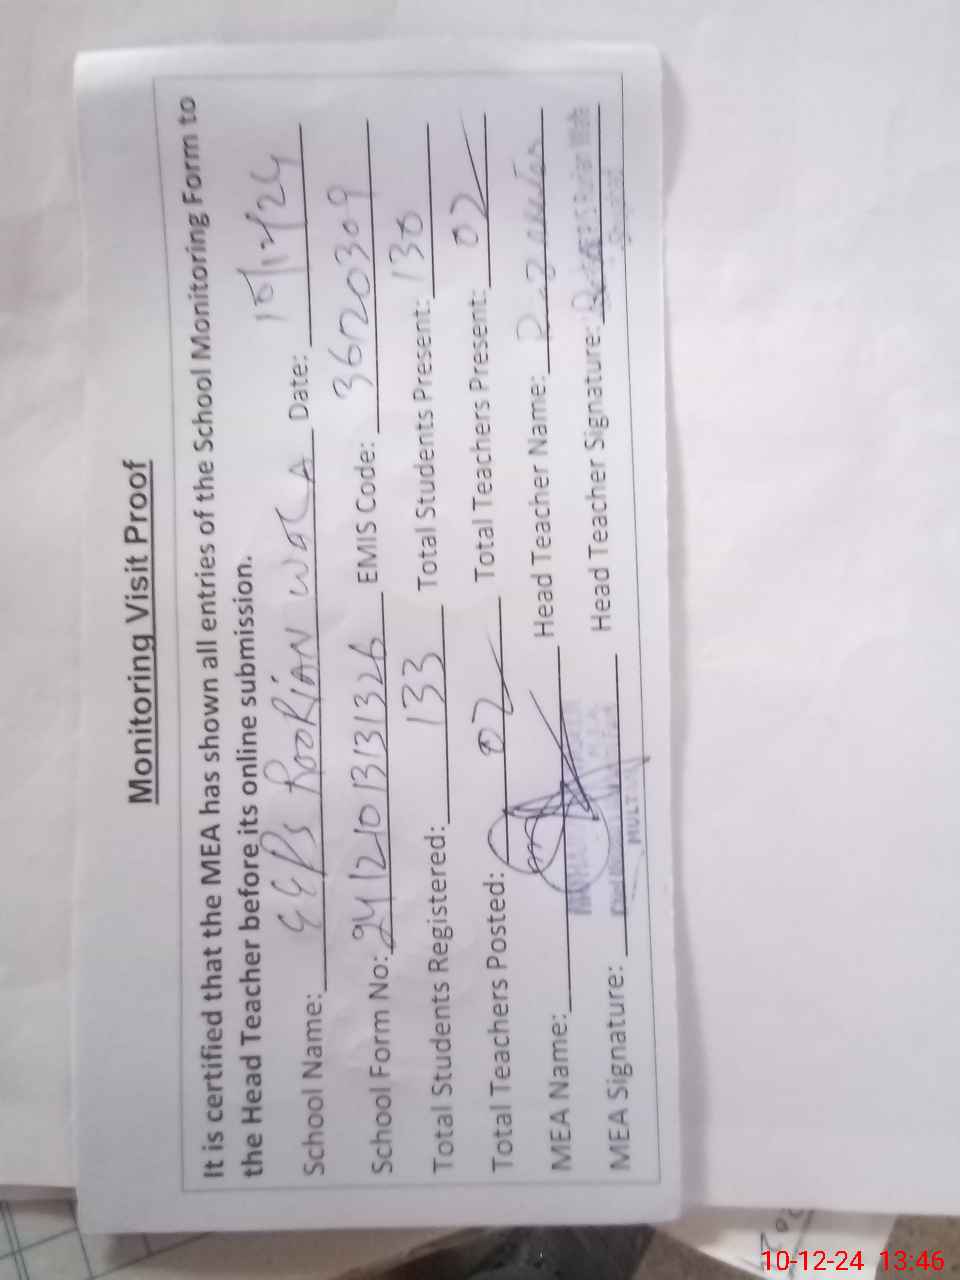 Monitoring Visit Proof
It is certified that the MEA has shown all entries of the School Monitoring Form to
the Head Teacher before its online submission.
School Name: GGPS ROORIAN WALA Date: 10/12/24
School Form No: 241210131326 EMIS Code: 36120309
Total Students Registered: 133 Total Students Present: 130
Total Teachers Posted: 02 Total Teachers Present: 02
MEA Name: Head Teacher Name:
MEA Signature: Head Teacher Signature:
10-12-24 13:46